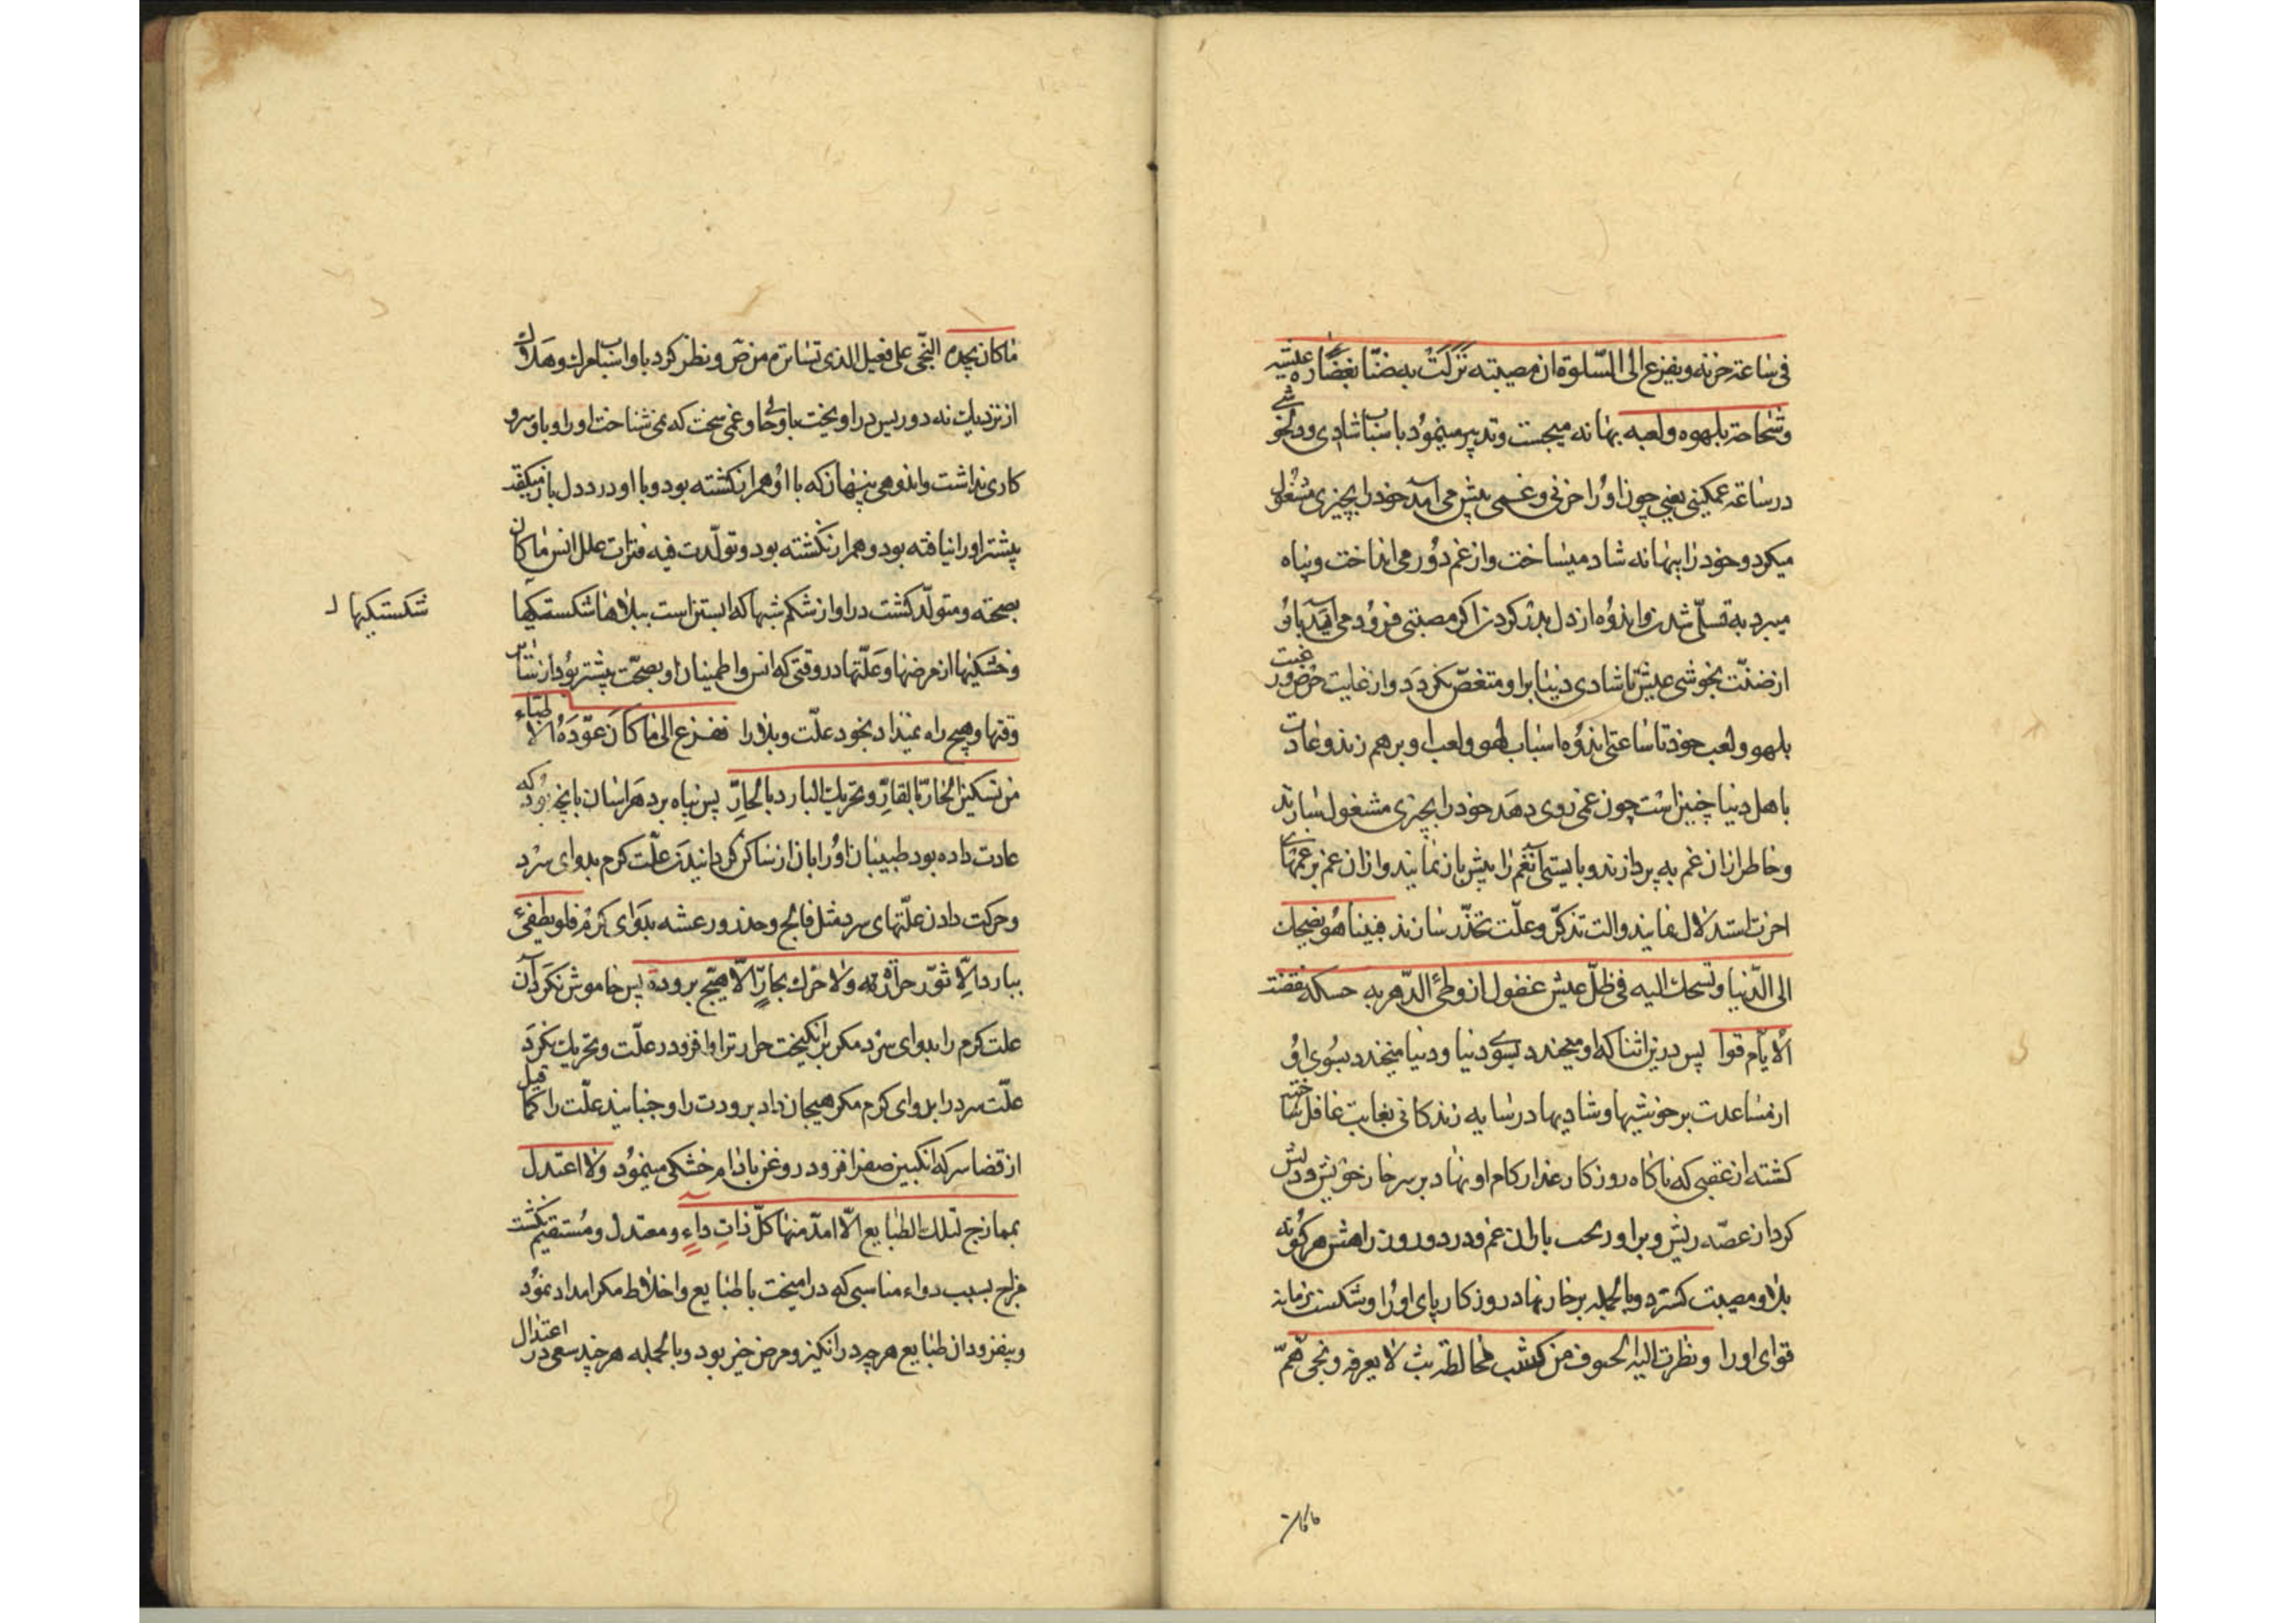 فی ساعة حزنه ویفزع الی السّلوة ان مصیبته نزلت به ضنّا بغضارة عیشه
وشحاحة بلهوه ولعبه بهانه میجست وتدبیر مینمود باسباب شادی ودلخوشی
در ساعة غمکینی یعنی چون او را حزنی وغمی پیش می آمد خود را بچیزی مشغول
میکرد وخود را ببهانه شاد میساخت واز غم دور می انداخت وپناه
میبرد به تسلّی شدن واندوه از دل بدر کردن اکر مصیبتی فرود می آمد باو
از ضنّت بخوشی عیش تا شادی دنیا برا و متغصّ نکردد واز غایت حرص ورغبت
بلهو ولعب خود تا ساعتی اندوه اسباب لهو ولعب او برهم نزند وعادت
با اهل دنیا چنین است چون غمی روی دهد خود را بچیزی مشغول سازند
وخاطر از ان غم به پردازند وبایستی آنغم را پیش باز نمایند واز ان غم بر غمهای
اخرت استدلال نمایند والت تذکّر وعلّت تحذّر سازند فبینا هو یضحک
الی الدّنیا وتضحک الیه فی ظلّ عیش غفول اذ وطئ الدّهر به حسکه ونقضت
الایّام قواه پس در این اثنا که او میخندد بسوی دنیا ودنیا میخندد بسوی او
از مساعدت بر خوشیها وشادیها در سایه زندکانی بغایت غافل ساخته
کشته از عقبی که ناکاه روزکار غدار کام او نهاد بر سر خار خویش ودلش
کرد از غصّه ریش وبر او ریخت باران غم ودرد ورون راهش هر کونه
بلا ومصیبت کسترد وبالجمله بر خار نهاد روزکار پای او را وشکست زمانه
قوای او را ونظرت الیه الحتوف من کثب فخالطه بثّ لا یعرفه ونجیّ همّ
ما کان
ما کان یجده النجّی علی فعیل الذی تسارّه مرض ونظر کرد باو اسباب مرک وهلاک
از نزدیک نه دور پس در اویخت باو حالی وغمی سخت که نمی شناخت او را وباو سر و
کاری نداشت واندوهی پنهان که با او همراز نکشته بود وبا او درد دل باز میکفد
پیشتر او را نیافته بود وهمراز نکشته بود وتولّدت فیه فترات علل انس ما کان
بصحّته ومتولّد کشت در او از شکم شبها که ابستن است ببلاها شکستکیها
شکستکیها ل
وخستکیها از مرضها وعلّتها در وقتی که انس واطمینان او بصحّت پیشتر بود از سایر
وقتها وهیچ راه نمیداد بخود علّت وبلا را ففزع الی ما کان عوّده الاطبّاء
من تسکین الحارّ بالقارّ وتحریک البارد بالحارّ پس پناه برد هراسان بانچه بود که
عادت داده بود طبیبان او را بان از ساکن کردانیدن علّت کرم بدوای سرد
وحرکت دادن علّتهای سرد مثل فالج وخدر ورعشه بدوای کرم فلم یطفئ
ببارد الّا ثوّر حرارة ولا حرّک بحارّ الّا هیّج برودة پس خاموش نکرد آن
علت کرم را بدوای سرد مکر برانکیخت حرارترا وافزود در علّت وتحریک نکرد
علّت سرد را بدوای کرم مکر هیجان داد برودت را وجنبانید علّت را کما قیل
از قضا سرکه انکبین صفرا فزود روغن بادام خشکی مینمود ولا اعتدل
بممازج لتلک الطبایع الّا امدّ منها کلّ ذات داء ومعتدل ومستقیم نکشت
مزاج بسبب دواء مناسبی که در امیخت با طبایع واخلاط مکر امداد نمود
وبیفزود ان طبایع هر چه درد انکیز ومرض خیز بود وبالجمله هر چند سعی در اعتدال